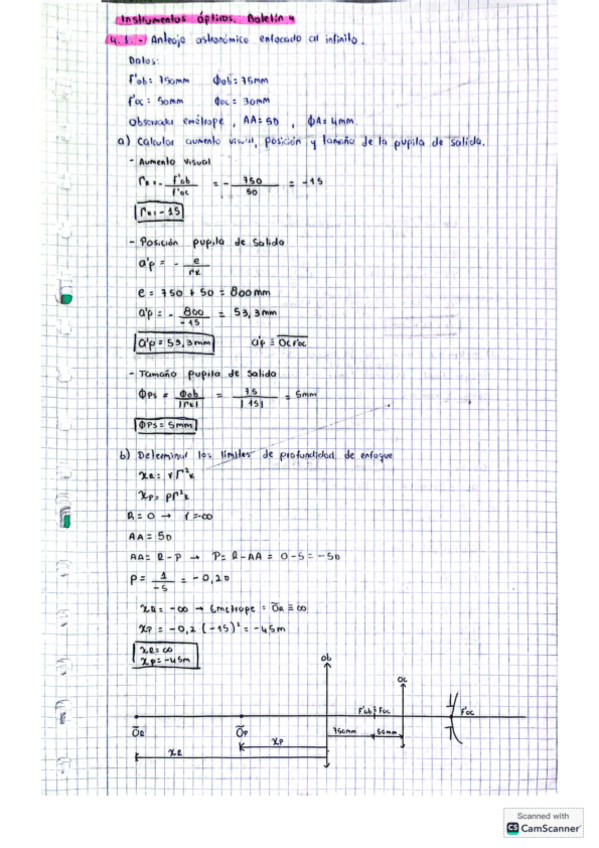 Instrumentos ópticos. Boletín 4
4.1.- Anteojo astronómico enfocado al infinito.
Datos:
f'ob = 750mm   Φob = 75mm
f'oc = 50mm   Φoc = 30mm
Observador emétrope, AA = 5D, ΦA = 4mm.
a) Calcular aumento visual, posición y tamaño de la pupila de salida.
- Aumento visual
Γk = - f'ob / f'oc = - 750 / 50 = -15
Γk = -15
- Posición pupila de salida
a'p = - e / Γk
e = 750 + 50 = 800mm
a'p = - 800 / -15 = 53,3mm
a'p = 53,3mm   a'p ≡ OcF'oc
- Tamaño pupila de salida
ΦPS = Φob / |Γk| = 75 / |15| = 5mm
ΦPS = 5mm
b) Determinar los límites de profundidad de enfoque
xR = rΓ²k
xP = pΓ²k
R = 0 → r = -∞
AA = 5D
AA = R - P → P = R - AA = 0 - 5 = -5D
p = 1 / -5 = -0,2D
xR = -∞ → Emétrope = ŌR ≡ ∞
xP = -0,2 (-15)² = -45m
xR = ∞
xP = -45m
Ob
Oc
F'ob ≡ Foc
F'oc
ŌR
ŌP
750mm
50mm
xP
xR
Scanned with
CS CamScanner